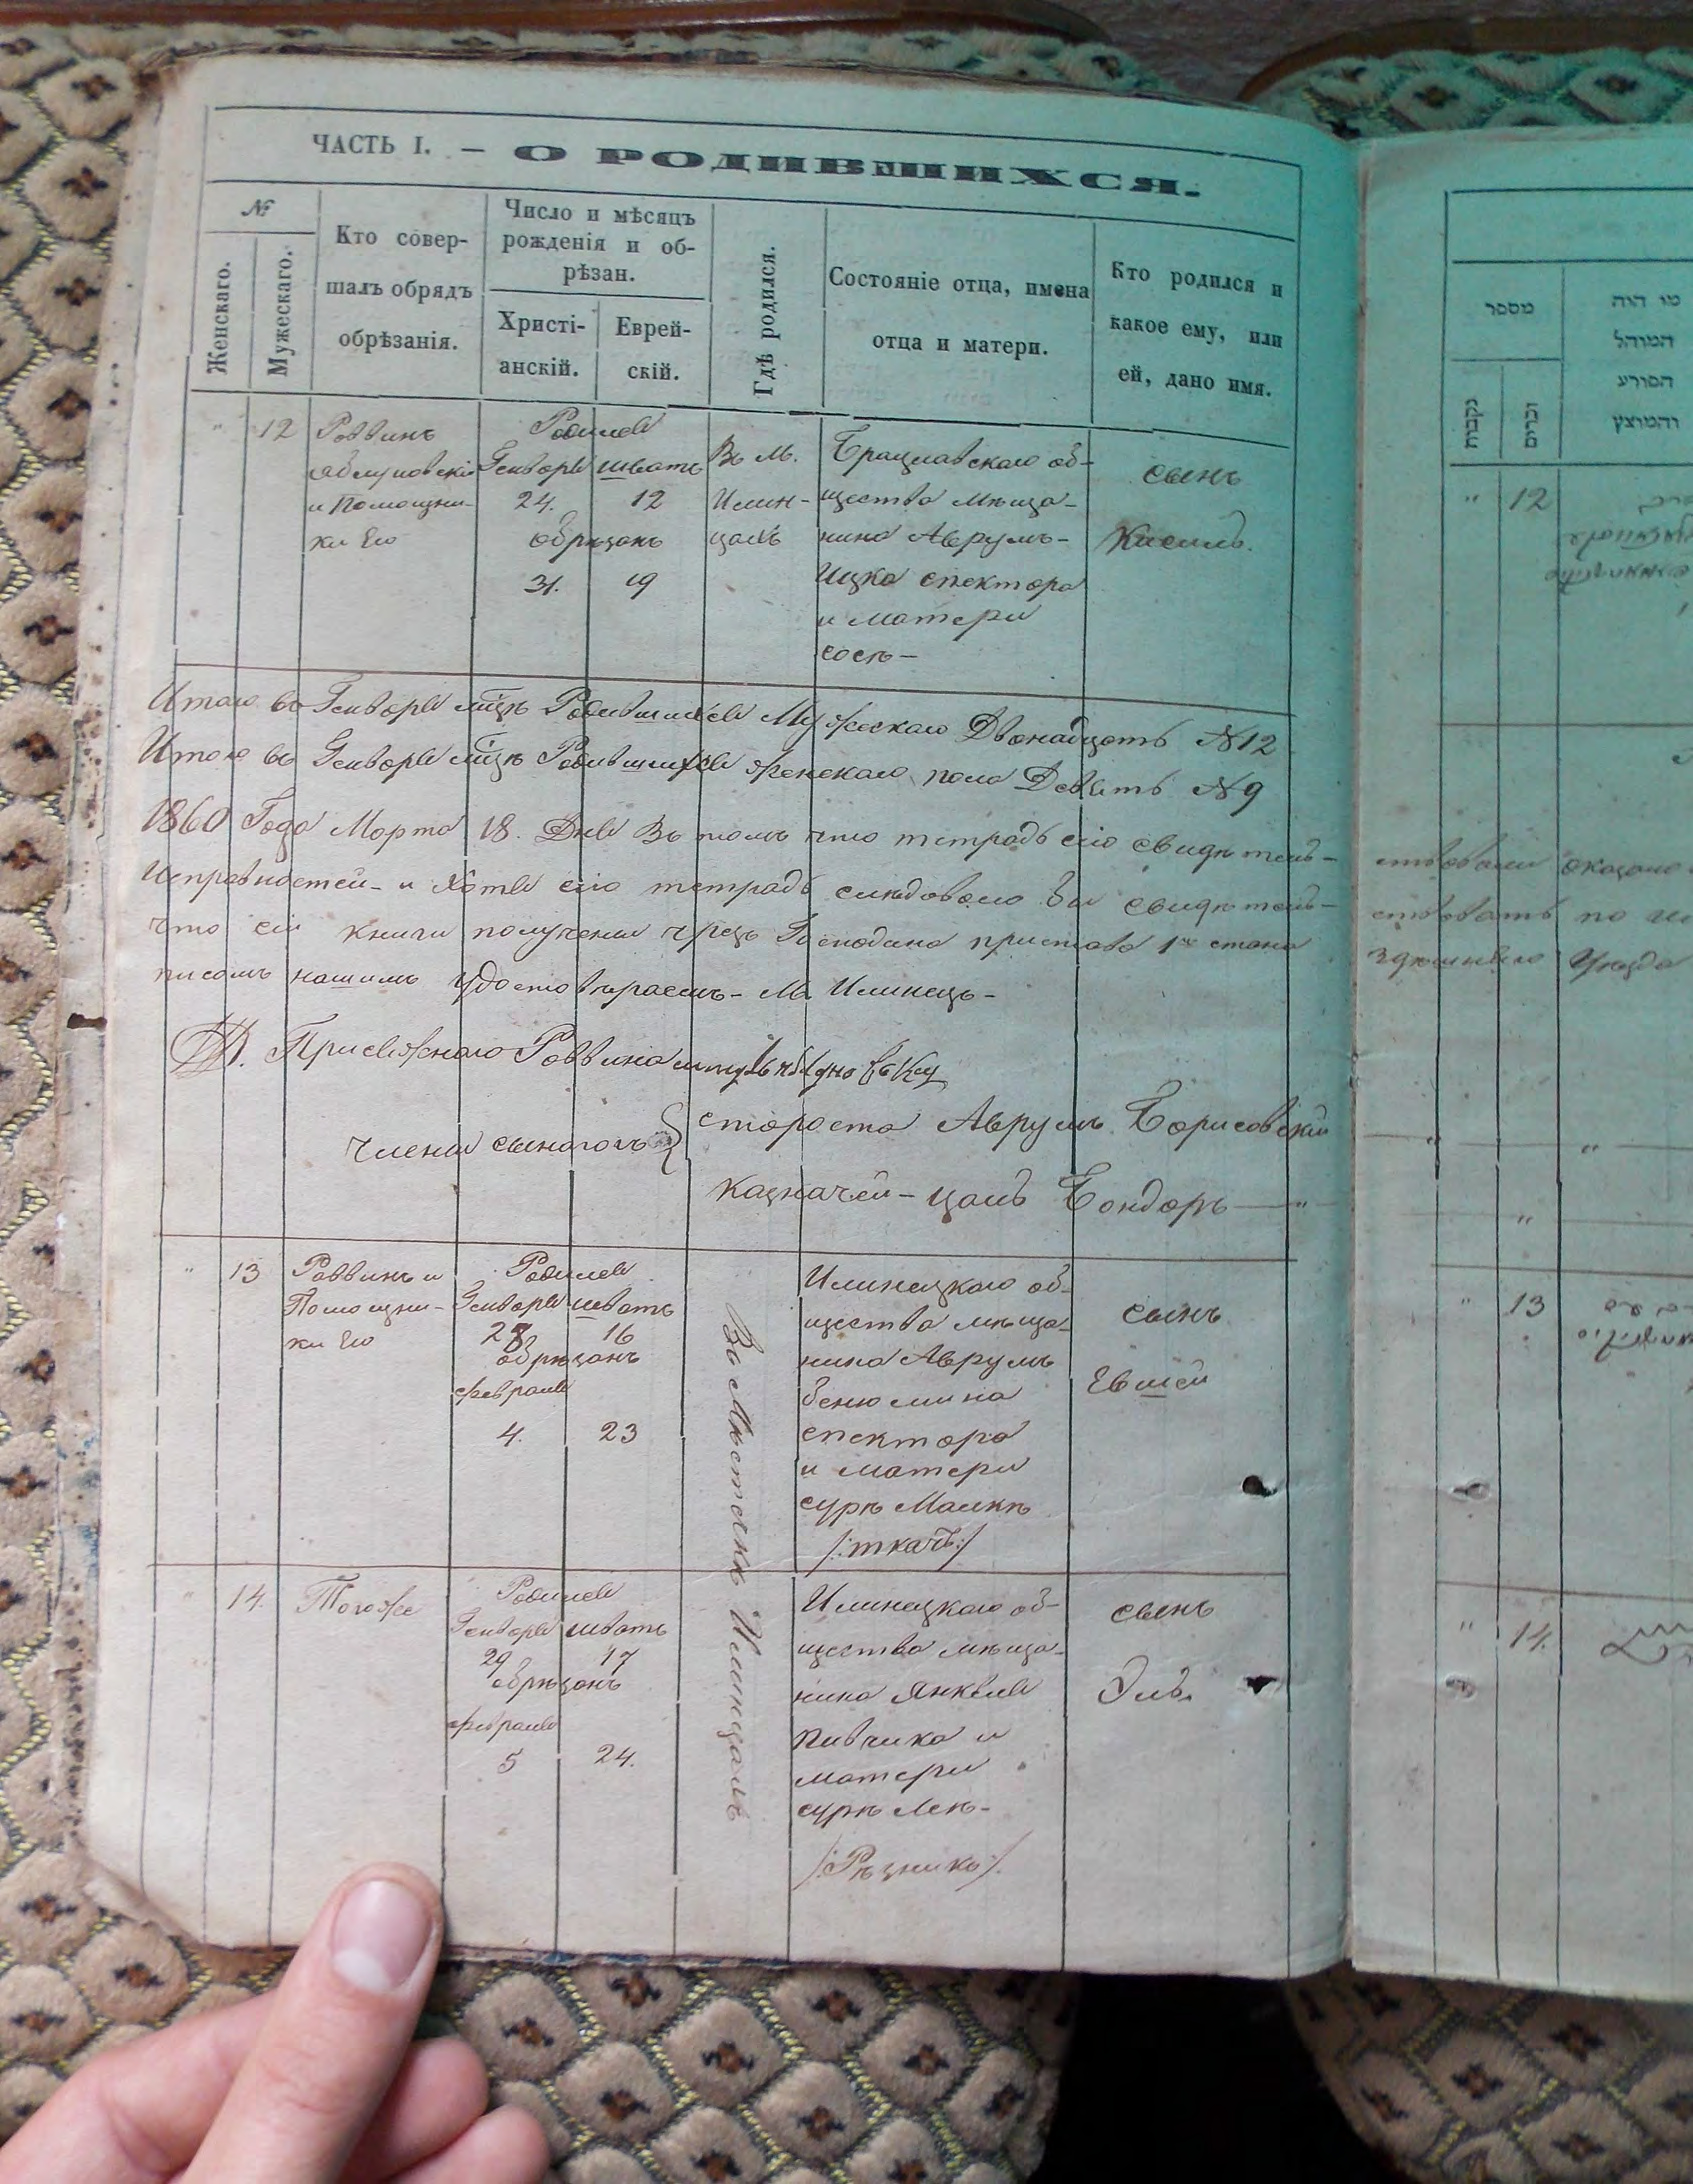 ЧАСТЬ I. — О РОДИВШИХСЯ.
№
Женскаго.
Мужескаго.
Кто совер-
шалъ обрядъ
обрѣзанія.
Число и мѣсяцъ
рожденія и об-
рѣзан.
Христі-
анскій.
Еврей-
скій.
Гдѣ родился.
Состояніе отца, имена
отца и матери.
Кто родился и
какое ему, или
ей, дано имя.
" 12
Раввинъ
и Помощни-
ки Его
Родился
Генваря Шватъ
24. 12
обрѣзанъ
31. 19
Въ М.
Илин-
цахъ
Брацлавскаго об-
щества мѣща-
нина Аврумъ-
Ицка спектора
и матери
Сосѣ-
сынъ
Кисиль.
Итого въ Генварѣ мцѣ Родившихся Мужескаго Двенадцать №12
Итого въ Генварѣ мцѣ Родившихся женскаго пола Девять №9
1860 Года Марта 18. Дня Въ томъ что тетрадь сію свидѣтель-
Исправностей- и Хотя сію тетрадь слѣдовало бы свидѣтель-
что сіи книги получены чрезъ Господина пристава 1го стана
писомъ нашимъ удостовѣраемъ- М Илинецъ-
Присяжнаго Раввина
члены сынагогъ
староста Аврумъ Борисовскій
казначей- Цаль Бондаръ — "
" 13
Раввинъ и
Помощни-
ки Его
Родился
Генваря Шватъ
28 16
обрѣзанъ
февраля
4. 23
Въ Мѣстечкѣ Илинцахъ
Илинецкаго об-
щества мѣща-
нина Аврумъ
бенюмина
спектора
и матери
сурѣ Малкѣ
/:ткачъ:/
сынъ
Евшей
" 14.
Тогоже
Родился
Генваря Шватъ
29 17
обрѣзанъ
февраля
5 24.
Илинецкаго об-
щества мѣща-
нина Янкеля
Пивчика и
матери
сурѣ Леѣ-
/:Рѣзникъ:/
сынъ
Эль.
מספר
נקבות
זכרים
מי היה
המוהל
הפורע
והמוצץ
" 12
ствовали оказано
ствовать по
здѣшняго Уѣзда
" 13
" 14.